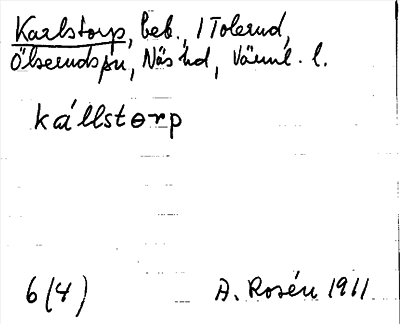 Karlstorp, beb., 1 Tolerud,
Ölserudspn, Näs hd, Värml. l.
kállstorp
6(4) A. Rosén 1911